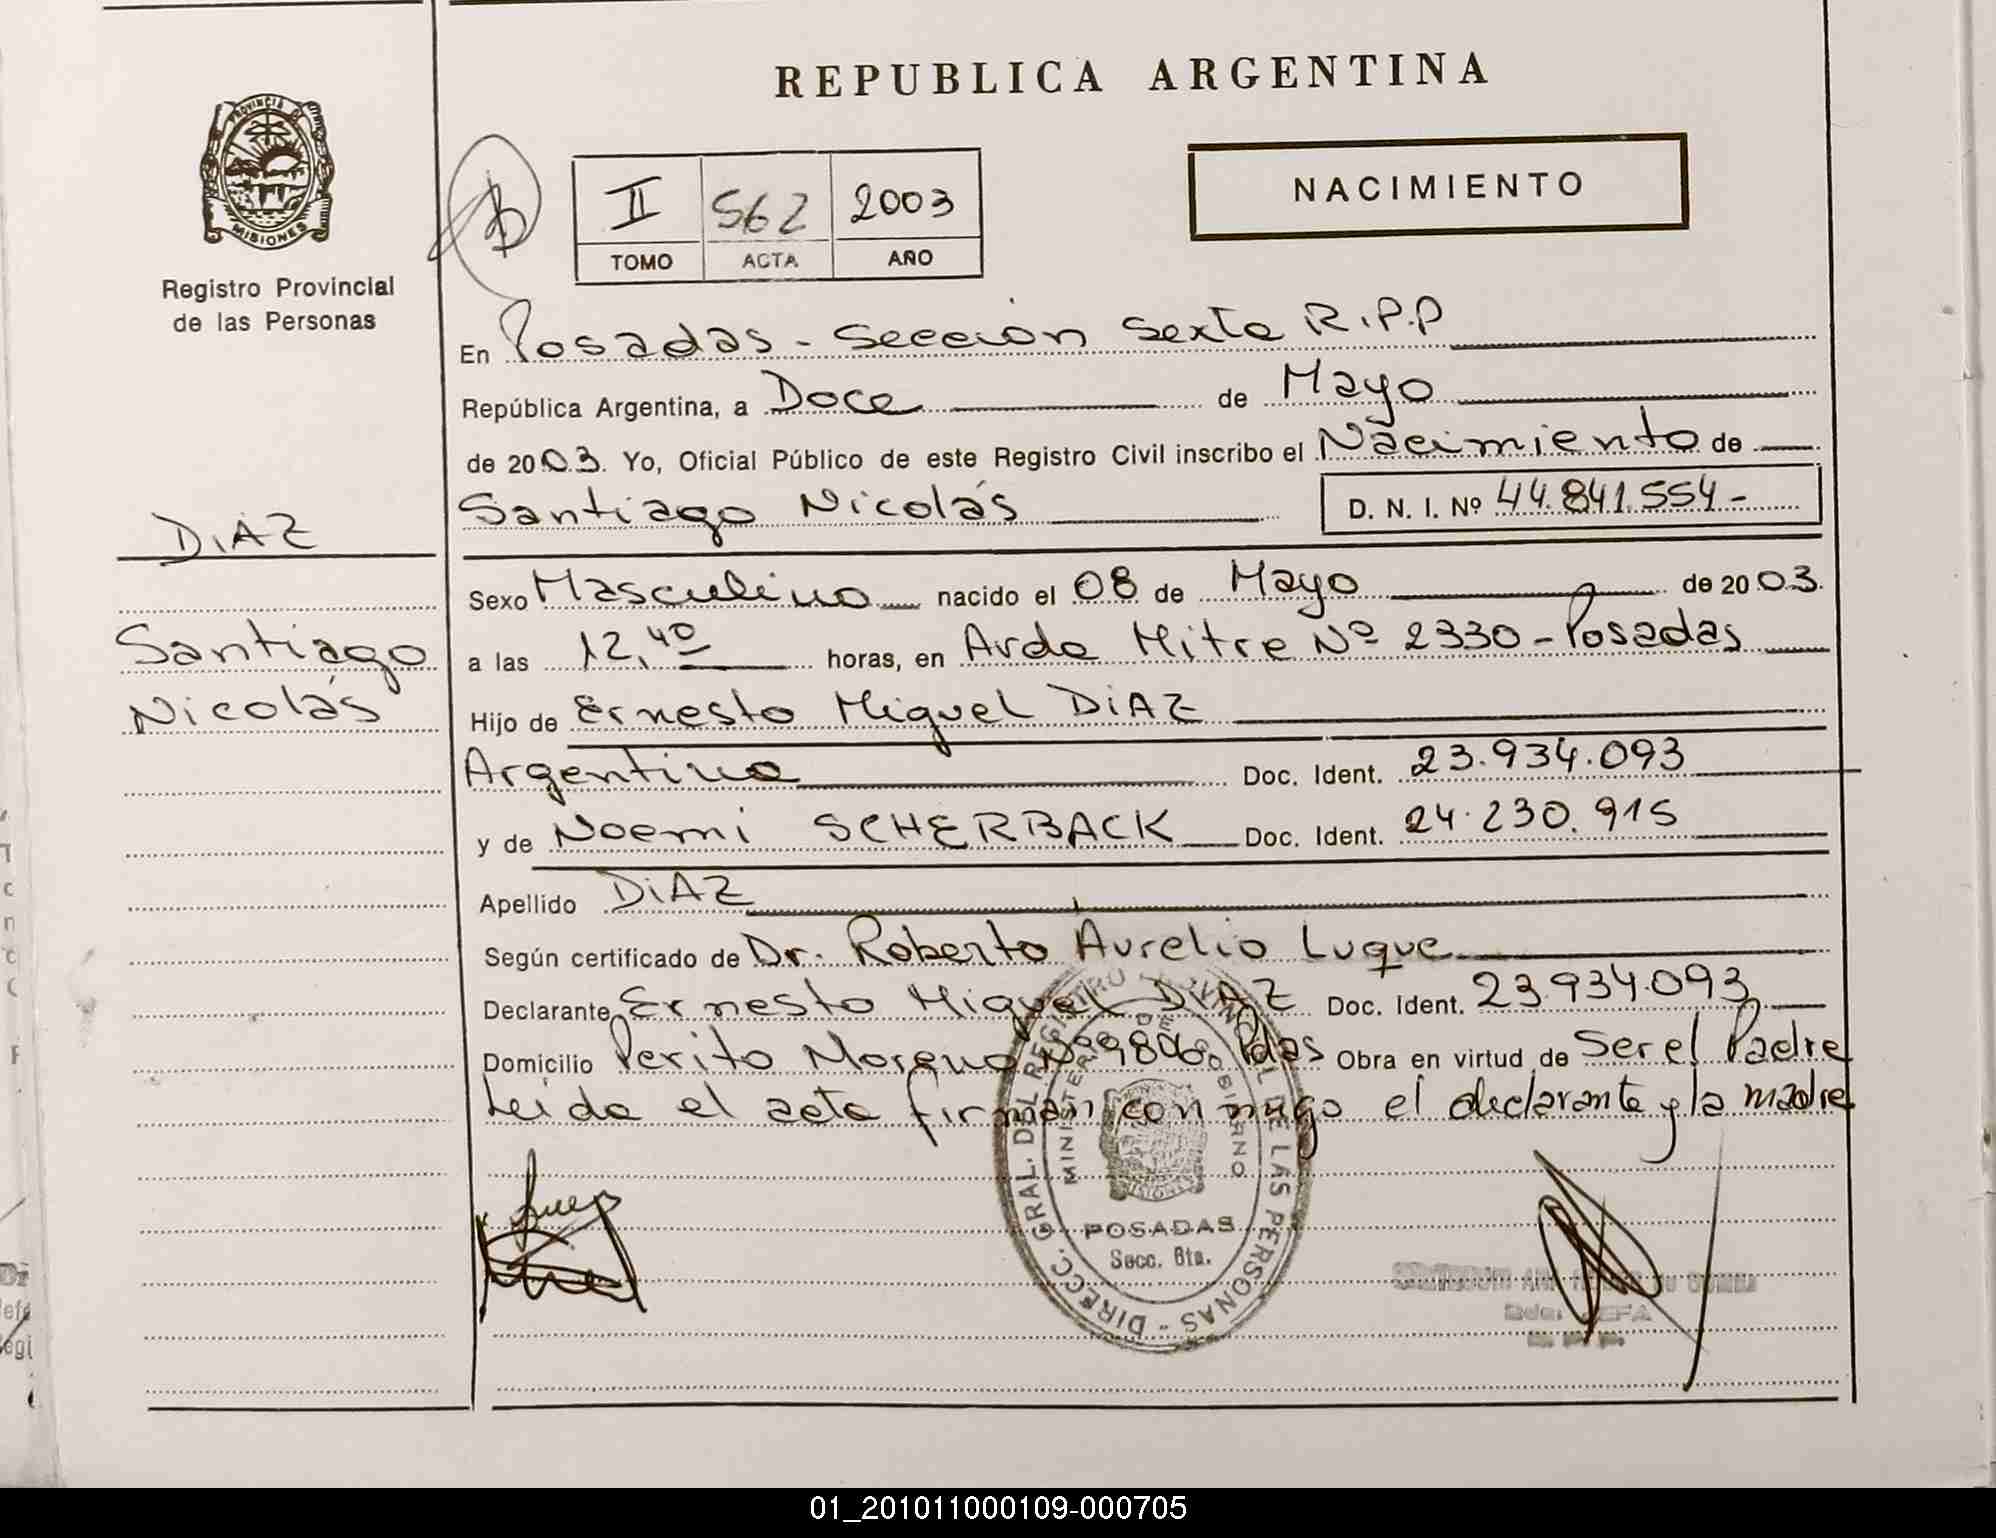 REPUBLICA ARGENTINA
PROVINCIA DE
MISIONES
Registro Provincial
de las Personas
II 562 2003
TOMO ACTA AÑO
NACIMIENTO
En Posadas - Sección Sexta R.P.P
República Argentina, a Doce de Mayo
de 2003. Yo, Oficial Público de este Registro Civil inscribo el Nacimiento de
Santiago Nicolás D. N. I. Nº 44.841.554-
DiAZ
Santiago
Nicolás
Sexo Masculino nacido el 08 de Mayo de 2003.
a las 12,40 horas, en Avda Mitre Nº 2330 - Posadas
Hijo de Ernesto Miguel DiAZ
Argentina Doc. Ident. 23.934.093
y de Noemi SCHERBACK Doc. Ident. 24.230.915
Apellido DiAZ
Según certificado de Dr. Roberto Aurelio Luque
Declarante Ernesto Miguel DiAZ Doc. Ident. 23.934.093
Domicilio Perito Moreno Nº 9806 Pdas Obra en virtud de Ser el Padre
Leida el acta firman conmigo el declarante y la madre
DIRECC. GRAL. DEL REGISTRO PROVINCIAL DE LAS PERSONAS -
MINISTERIO DE GOBIERNO
MISIONES
POSADAS
Secc. 6ta.
JEFA
01_201011000109-000705